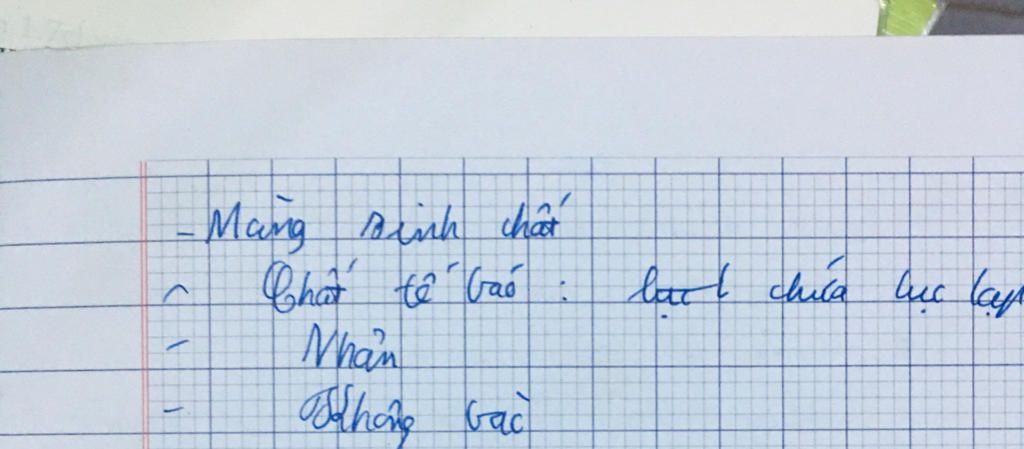 - Màng sinh chất
- Chất tế bào : chứa lục lạp
- Nhân
- Không bào